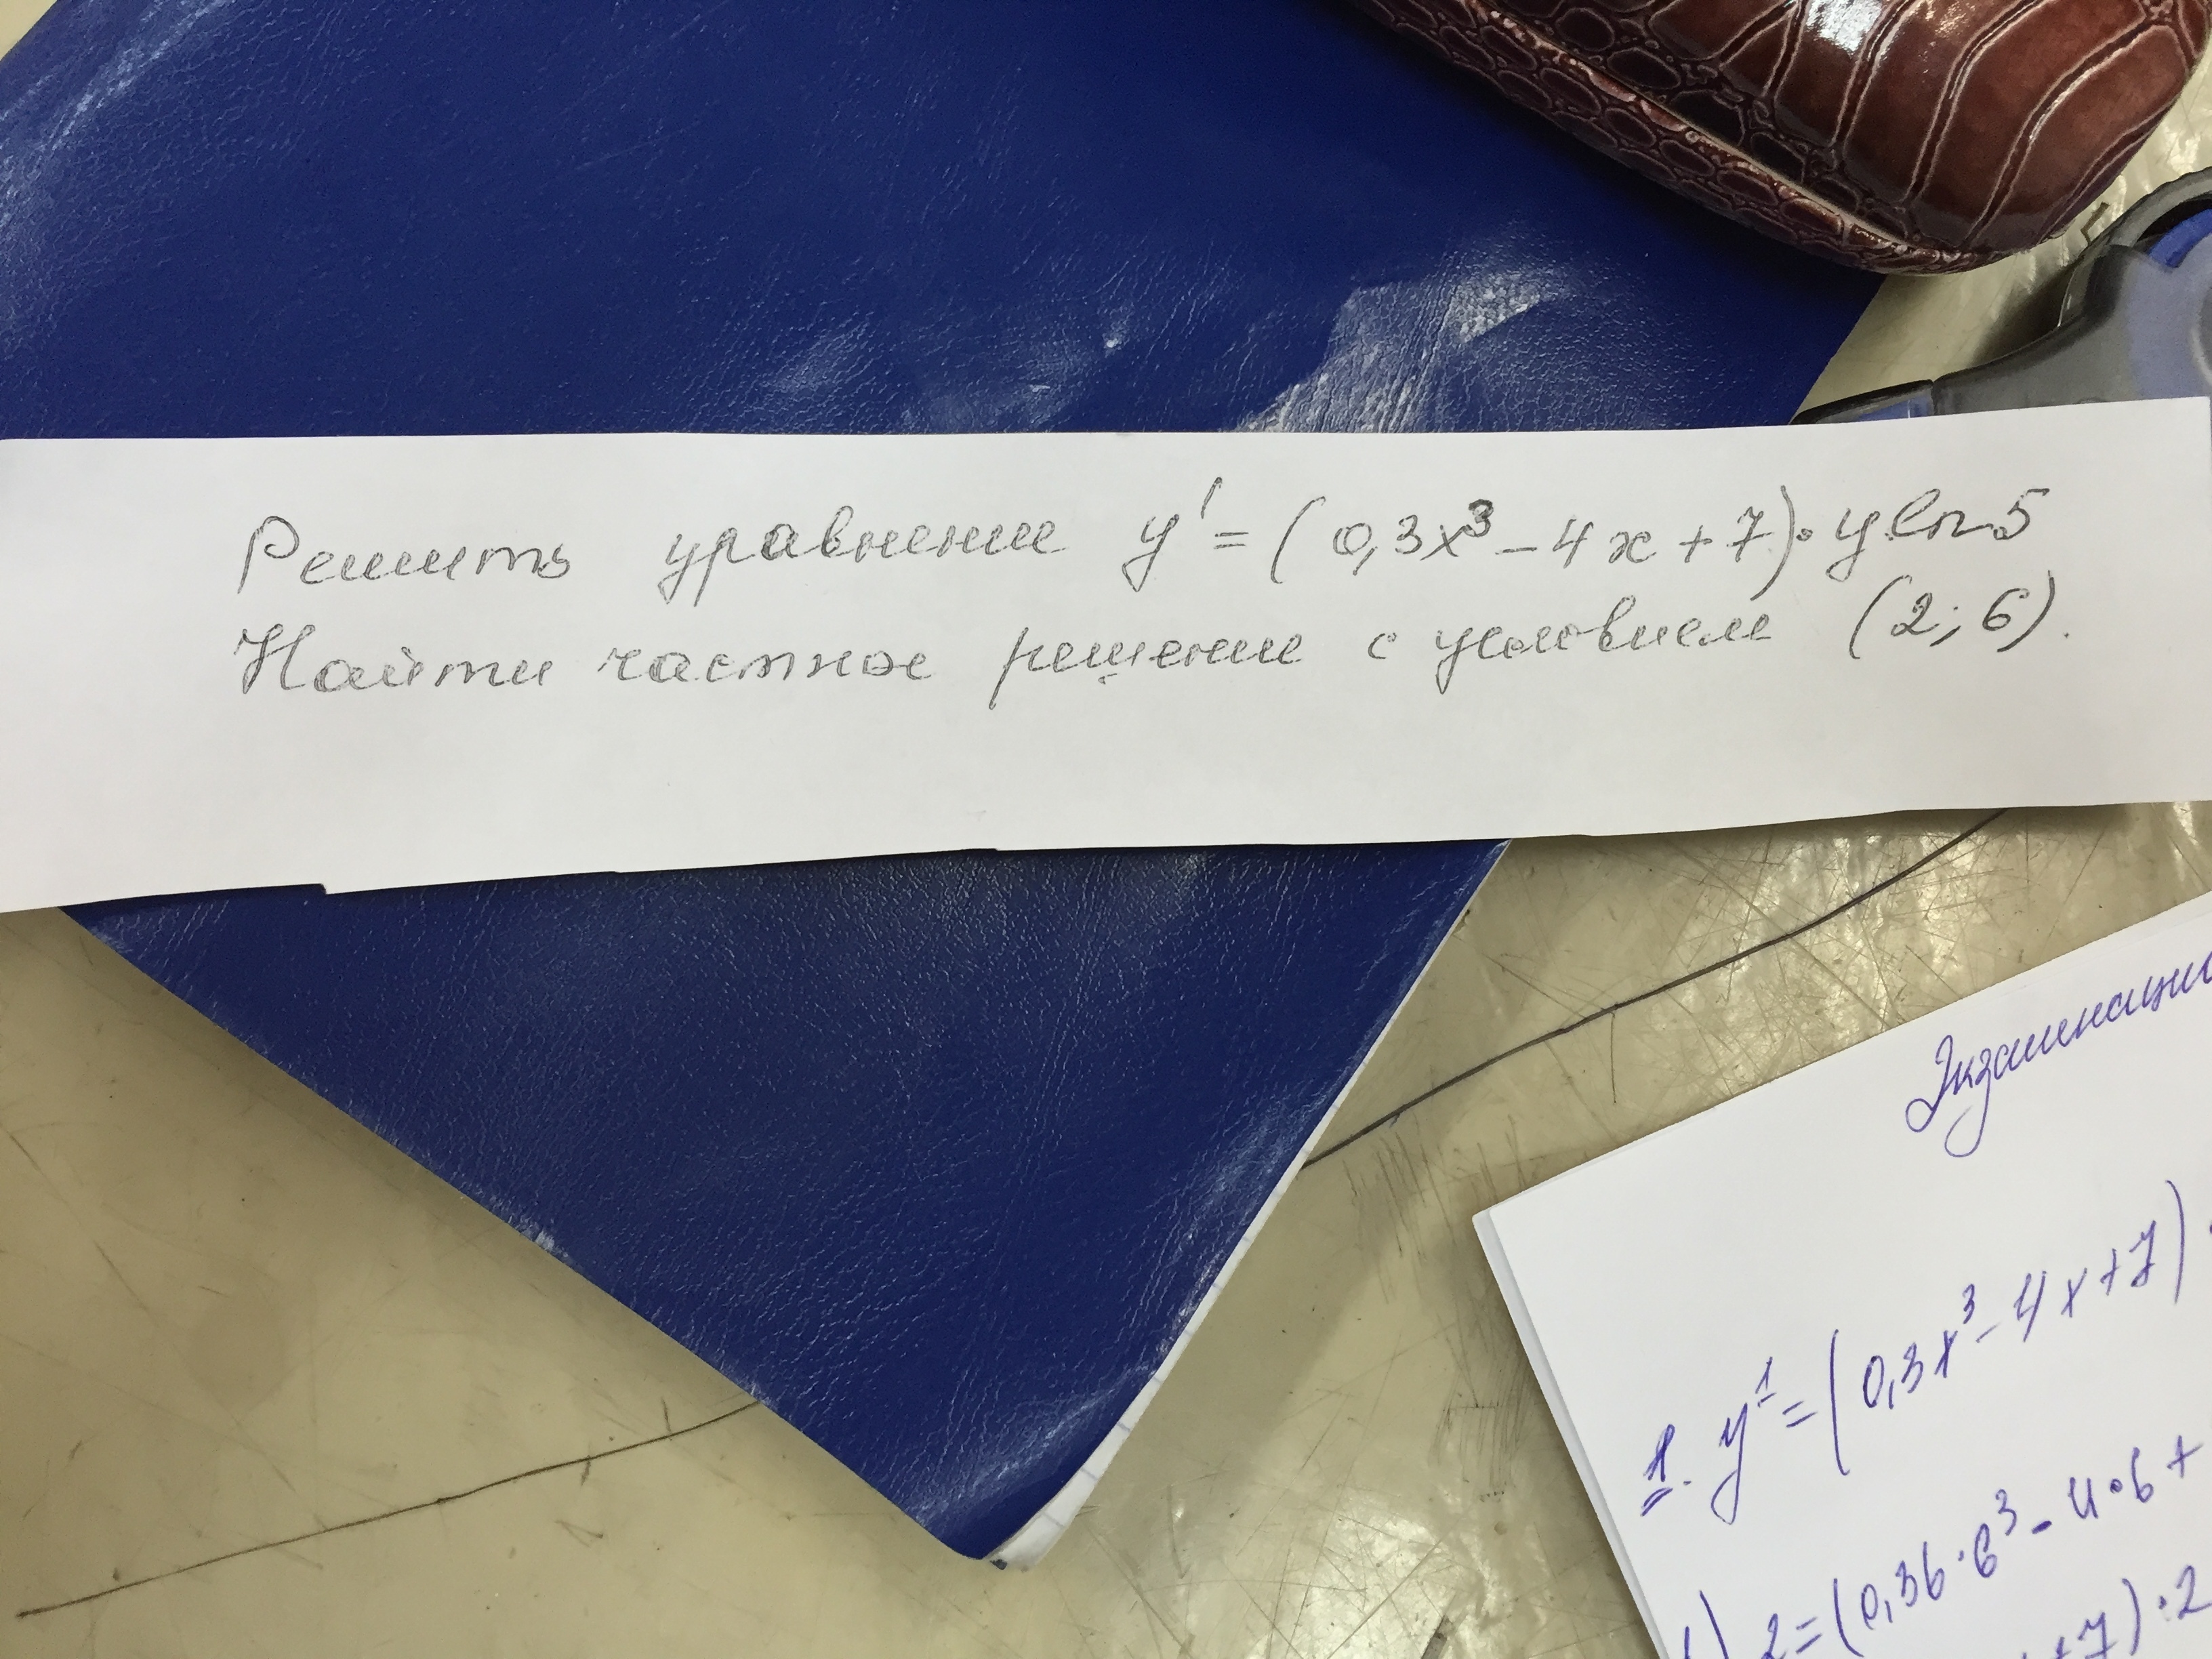 Решить уравнение y' = (0,3x³ – 4x + 7)·y ln 5
Найти частное решение с условием (2; 6).
Экзаменацио
1. y¹ = (0,3x³ – 4x + 7)
1) 2 = (0,36·6³ - 4·6 +
+7)·2